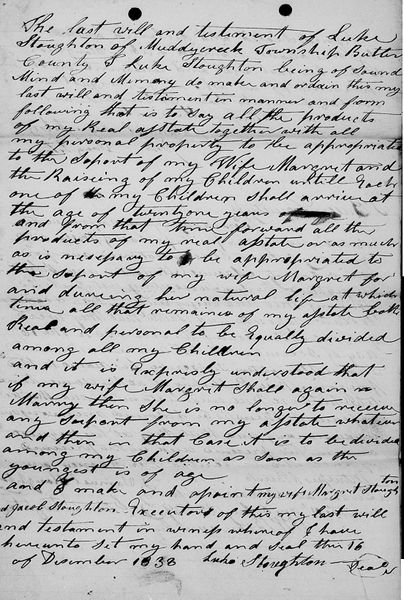 The last will and testiment of Luke
Stoughton of Muddycreek Township Butler
County I Luke Stoughton being of Sound
Mind and Memory do make and ordain this my
last will and testiment in manner and form
following that is to Say all the products
of my Real astate together with all
my personal property to be appropriated
to the Soport of my Wife Margret and
the Raiseing of my Children untill Each
one of my Children Shall arrive at
the age of twentyone years
and from that time forward all the
products of my real astate or as much
as is nisepary to be appropriated to
the Soport of my wife Margret for
and dureing her natural life at which
time all that remaines of my astate both
Real and personal to be Equally divided
among all my Children
and it is Expresly understood that
if my wife Margrit Shall again
Marry then She is no longer to receive
any Suport from my astate whatever
and then in that Case it is to be divided
among my Children as soon as the
youngest is of age
and I make and apoint my wife Margret Stoughton
Jacob Stoughton Executors of this my last will
and testament in winess whereof I have
hereunto Set my hand and Seal this 16
of Disimber 1838 Luke Stoughton Seal